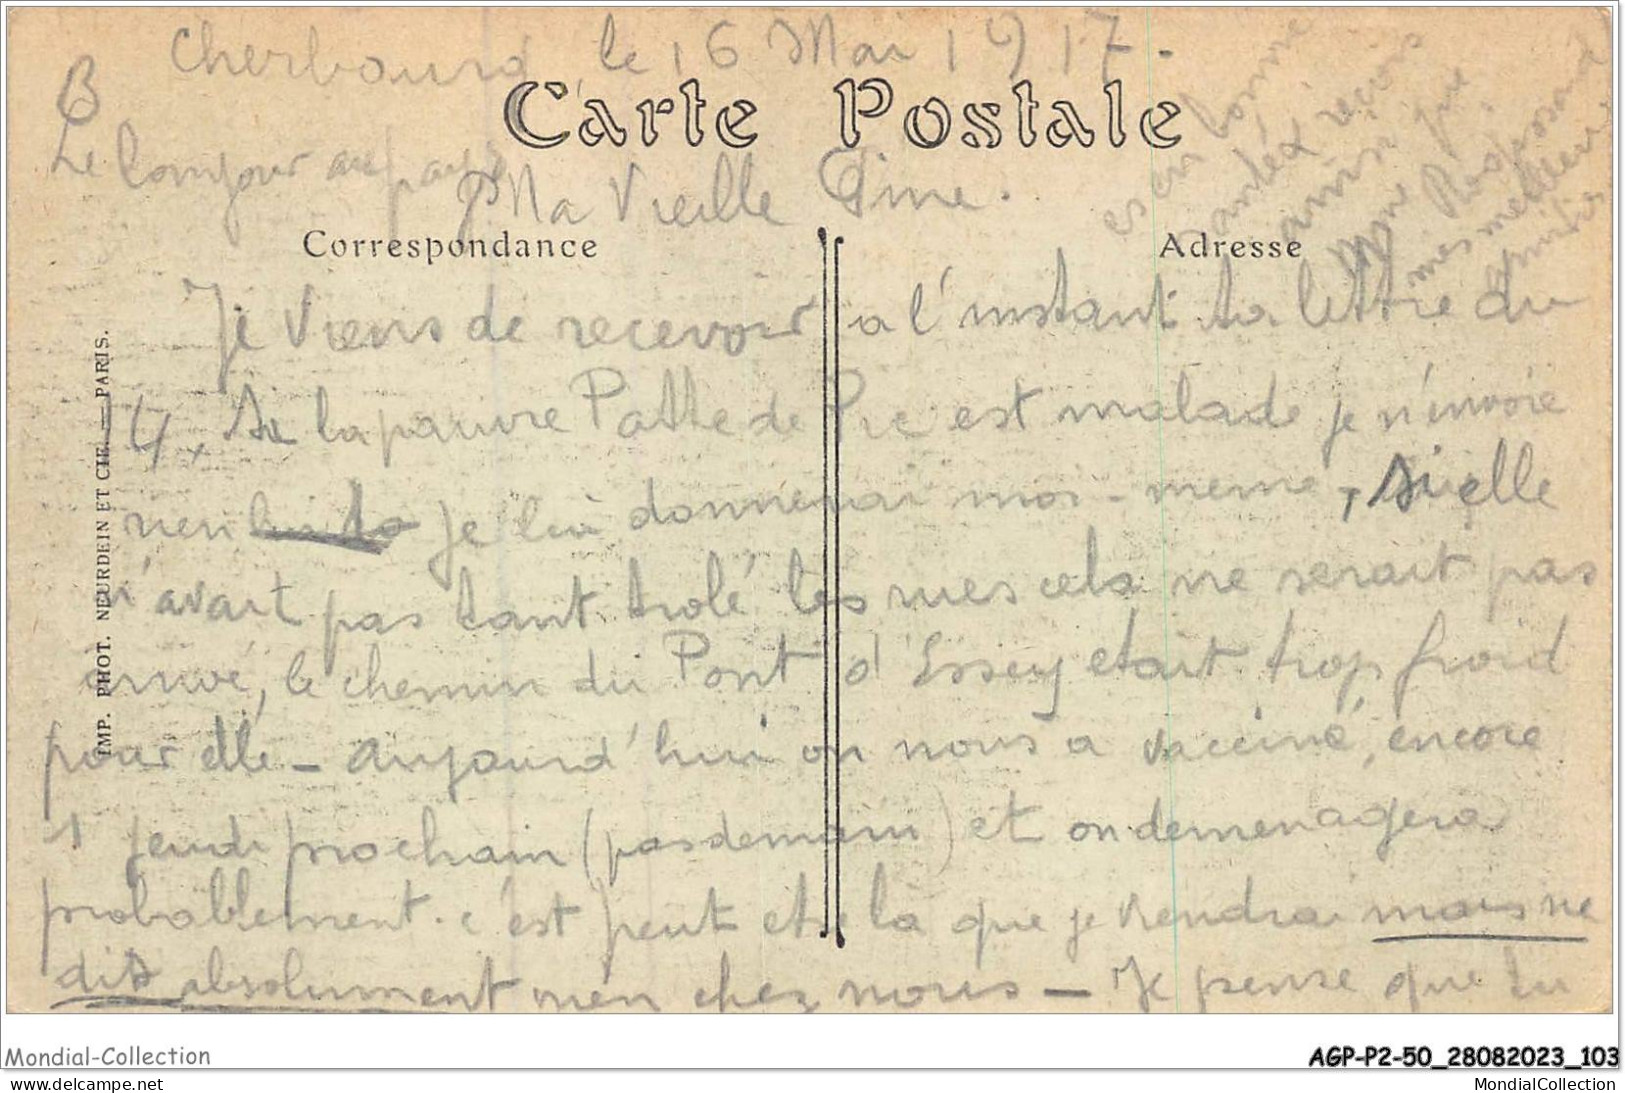 Cherbourg, le 16 Mai 1917.
Carte Postale
Le bonjour au pays
Ma Vieille
Correspondance
Adresse
Je viens de recevoir a l'instant ta lettre du
14, Si la pauvre Patte de Pie est malade je n'envoie
rien je lui donnerai moi-meme, si elle
n'avait pas tant trolé les rues cela ne serait pas
arrivé, le chemin du Pont d'Essey etait trop froid
pour elle - aujourd'hui on nous a vacciné, encore
1 jeudi prochain (pas demain) et on demenagera
probablement. c'est peut etre la que je viendrai mais ne
dis absolument rien chez nous - Je pense que tu
es en bonne
santé reçois
ainsi que
mes meilleurs
amitiés
IMP. PHOT. NEURDEIN ET CIE. — PARIS.
Mondial-Collection
AGP-P2-50_28082023_103
delcampe.net
MondialCollection